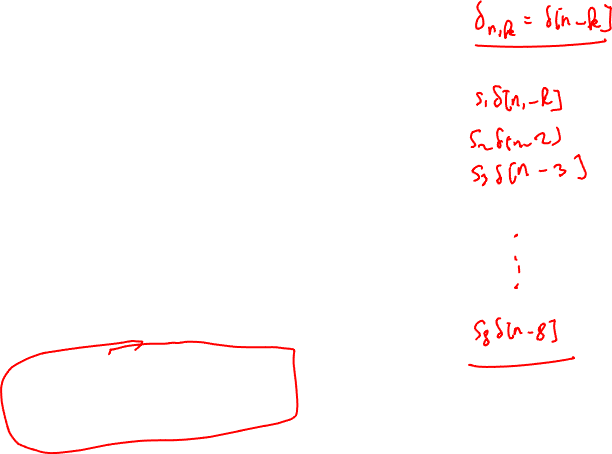 δn,k = δ[n-k]
s1 δ[n,-k]
s2 δ[n-2]
s3 δ[n-3]
s8 δ[n-8]